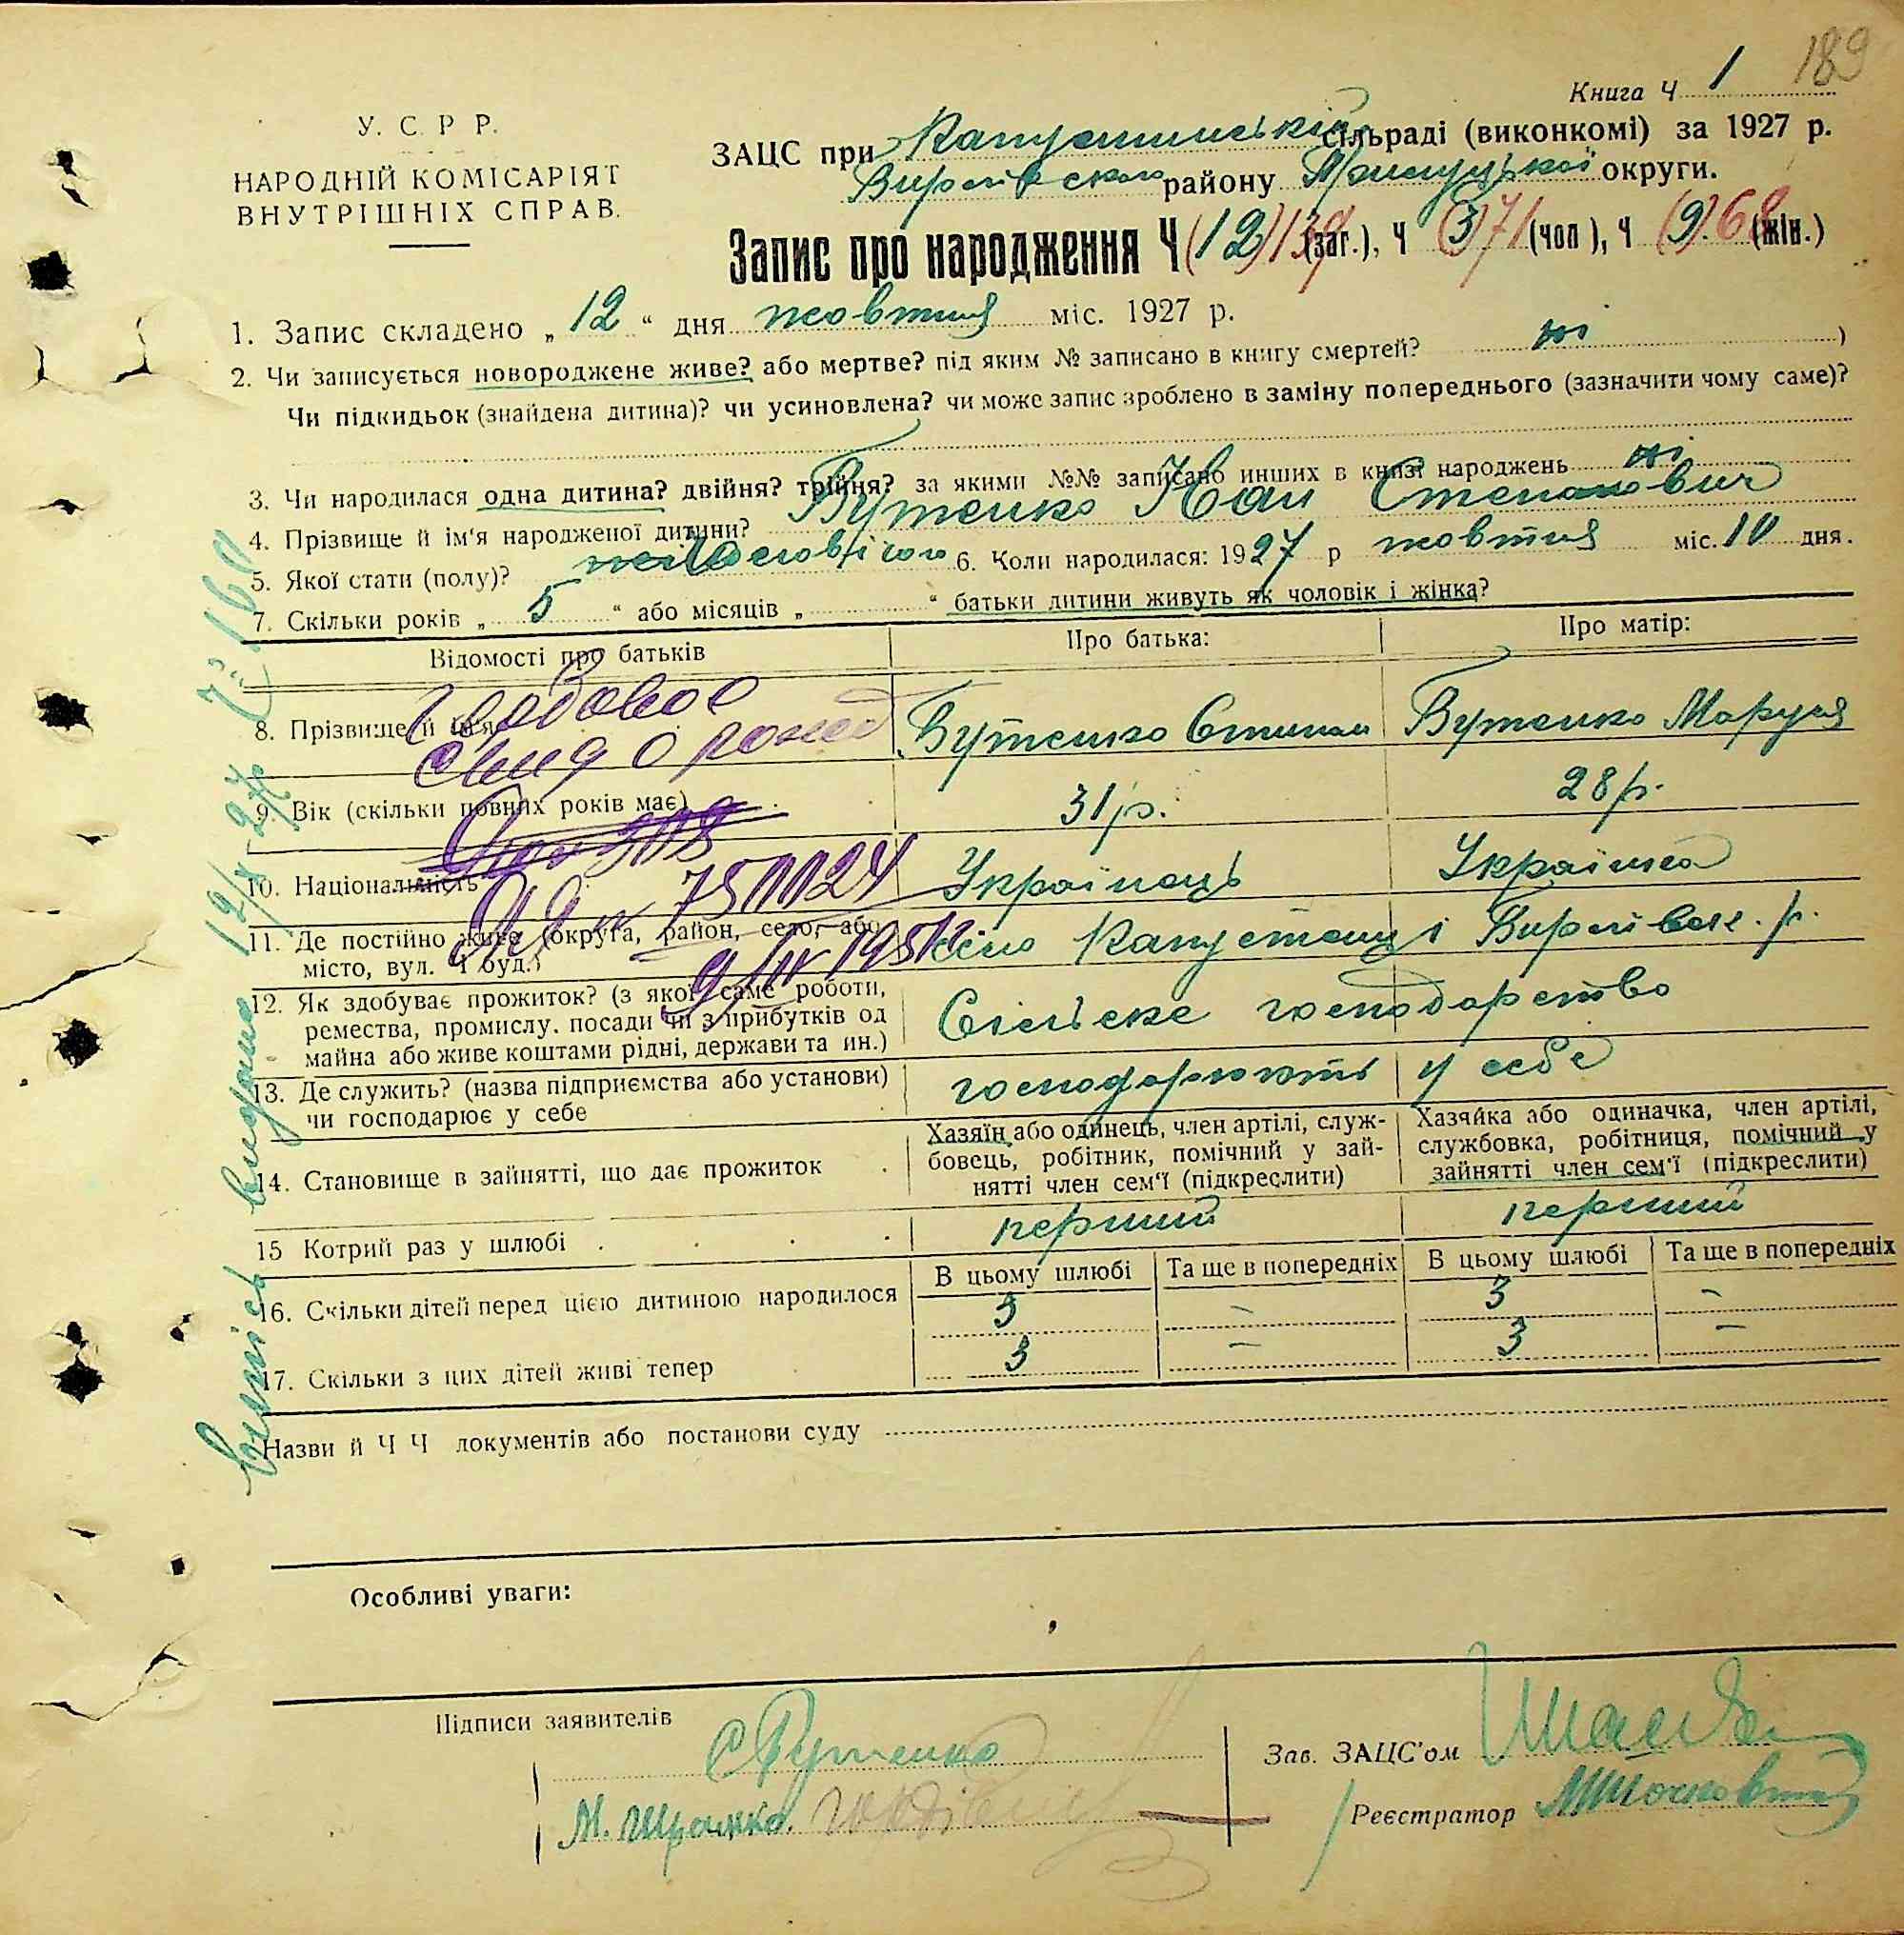 189
Книга Ч 1
У. С. Р Р.
НАРОДНІЙ КОМІСАРІЯТ
ВНУТРІШНІХ СПРАВ.
ЗАЦС при сільраді (виконкомі) за 1927 р.
району округи.
Запис про народження Ч (12) 139 (заг.), Ч (3) 71 (чол), Ч (9) 68 (жін.)
1. Запис складено „ 12 “ дня жовтня міс. 1927 р.
2. Чи записується новороджене живе? або мертве? під яким № записано в книгу смертей? ні )
Чи підкидьок (знайдена дитина)? чи усиновлена? чи може запис зроблено в заміну попереднього (зазначити чому саме)?
3. Чи народилася одна дитина? двійня? трійня? за якими №№ записано инших в книзі народжень ні
4. Прізвище й ім'я народженої дитини? Бутенко Іван Степанович
5. Якої стати (полу)? чоловічого 6. Коли народилася: 1927 р жовтня міс. 10 дня.
7. Скільки років „ 5 “ або місяців „ “ батьки дитини живуть як чоловік і жінка?
Відомості про батьків Про батька: Про матір:
8. Прізвище й ім'я Бутенко Степан Бутенко Маруся
9. Вік (скільки повних років має) 31 р. 28 р.
10. Національність Українець Українка
11. Де постійно живе (округа, район, село, або
місто, вул. Ч буд.) село Капустинці
12. Як здобуває прожиток? (з якої саме роботи,
ремества, промислу. посади чи з прибутків од
майна або живе коштами рідні, держави та ин.) Сільське господарство
13. Де служить? (назва підприємства або установи)
чи господарює у себе господарюють у себе
14. Становище в зайнятті, що дає прожиток
Хазяїн або одинець, член артілі, служ-
бовець, робітник, помічний у зай-
нятті член сем'ї (підкреслити)
Хазяйка або одиначка, член артілі,
службовка, робітниця, помічний у
зайнятті член сем'ї (підкреслити)
15 Котрий раз у шлюбі перший перший
В цьому шлюбі Та ще в попередніх В цьому шлюбі Та ще в попередніх
16. Скільки дітей перед цією дитиною народилося 3 – 3 –
17. Скільки з цих дітей живі тепер 3 – 3 –
Назви й Ч Ч документів або постанови суду
Особливі уваги:
Підписи заявителів
С Бутенко
Зав. ЗАЦС'ом
Реєстратор
Випись видана 12/X-27